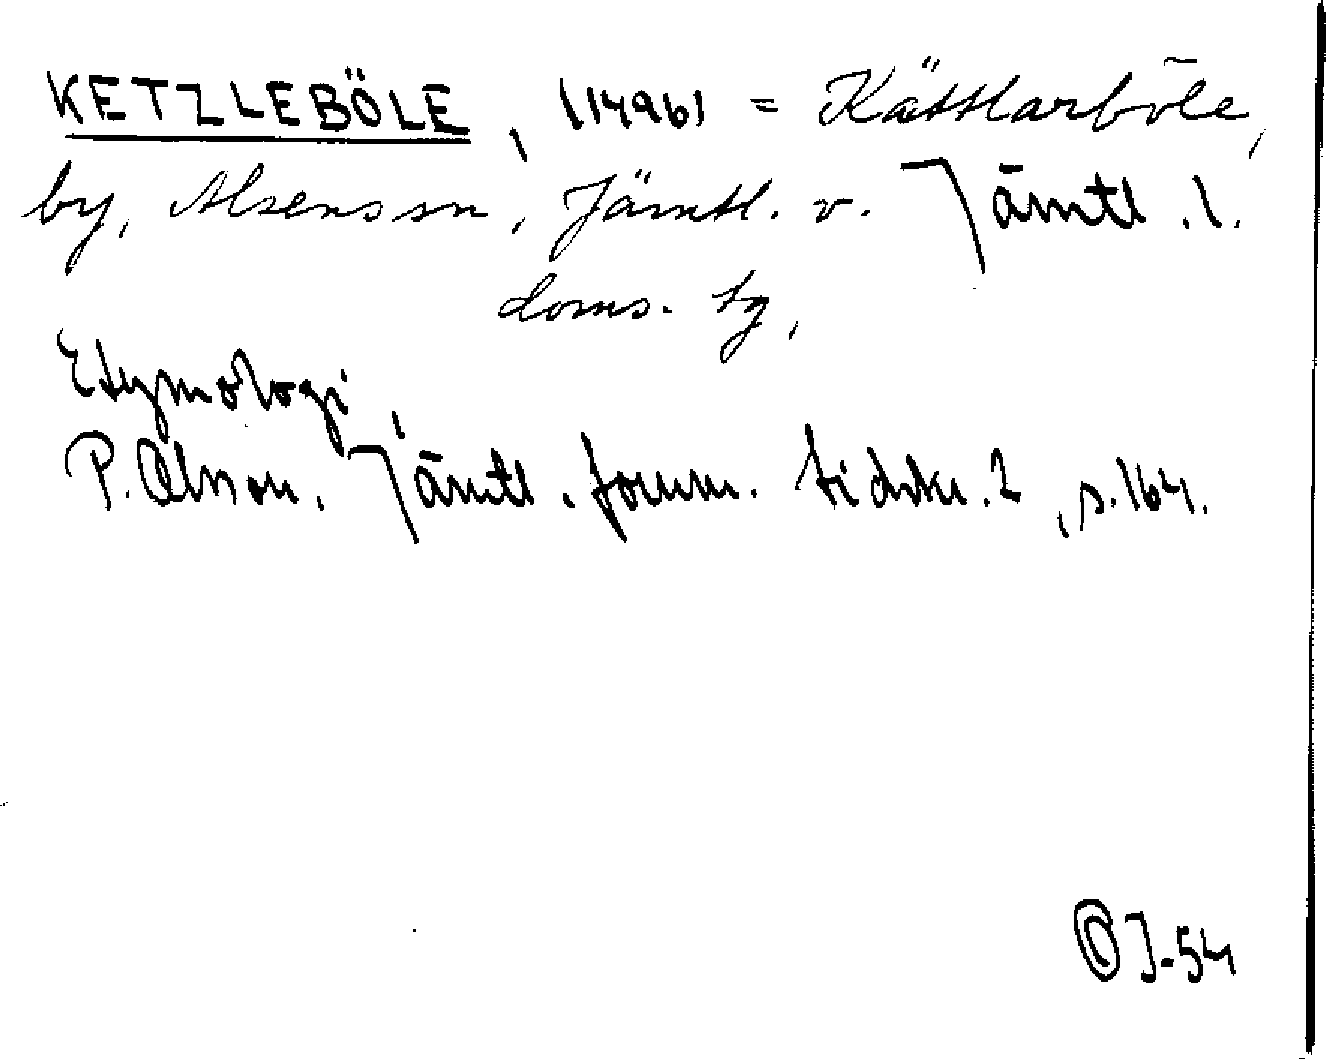 KETZLEBÖLE, (1496) = Kättlarböle,
by, Alsens sn, Jämtl. v. Jämtl. l.
doms. tg,
Etymologi,
P. Olsson. Jämtl. fornm. tidskr. 2, s. 164.
© J-54